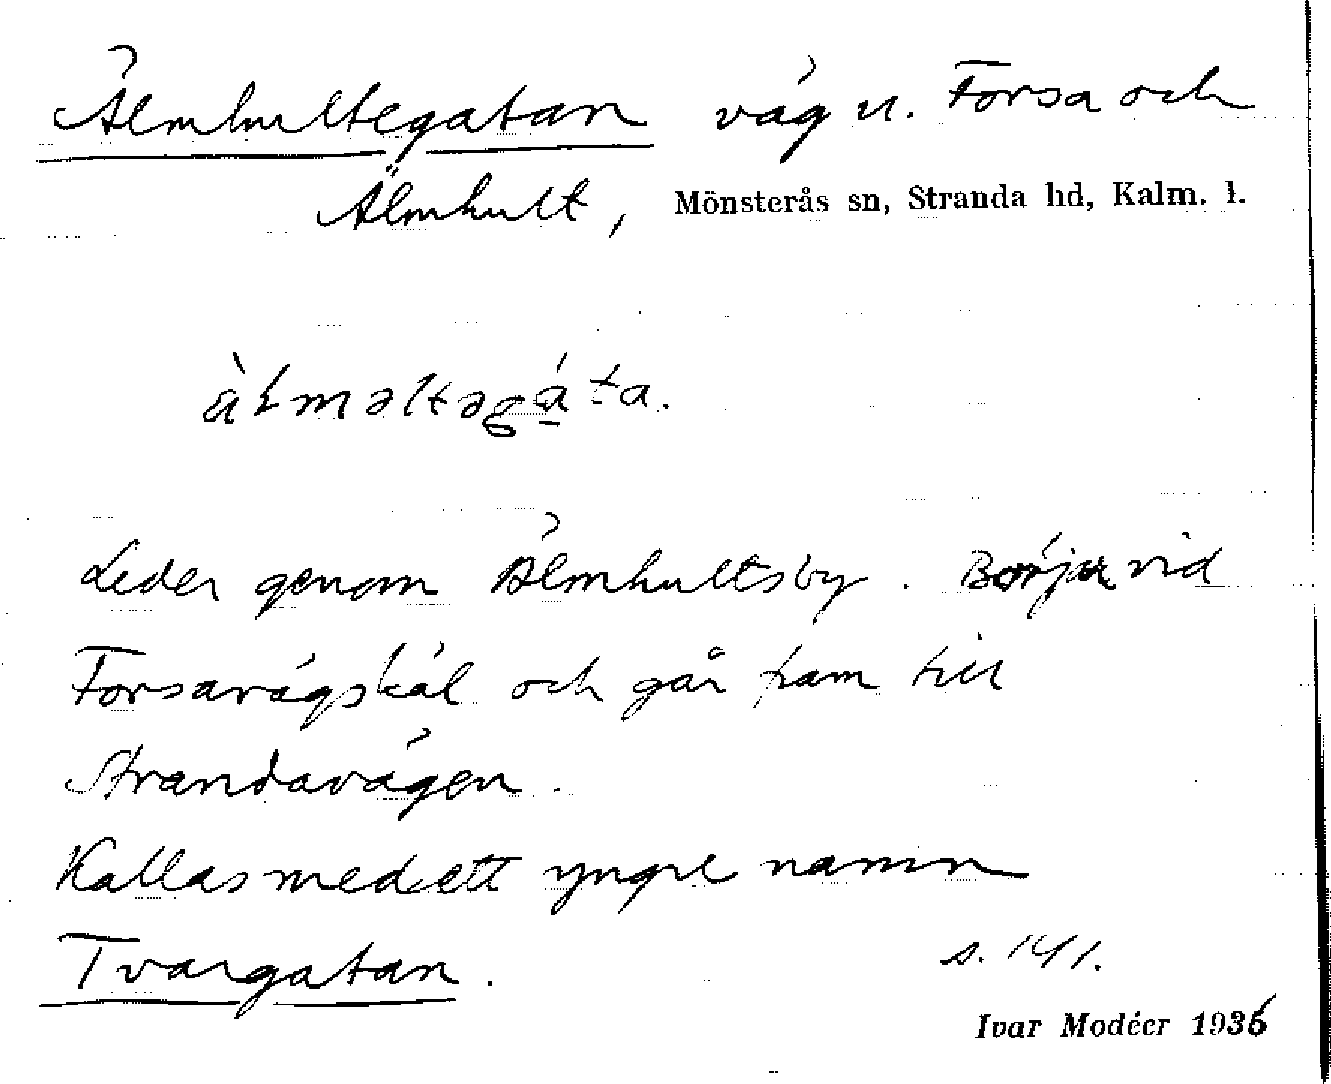 Älmhultegatan väg u. Forsa och
Älmhult, Mönsterås sn, Stranda hd, Kalm. l.
àLməltəgáta.
Leder genom Älmhultsby. Börjar vid
Forsavägskäl och går fram till
Strandavägen.
Kallas med ett yngre namn
Tvärgatan. s. 141.
Ivar Modéer 1936